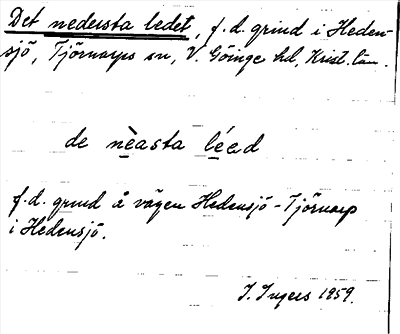 Det nedersta ledet, f.d. grind i Heden-
sjö, Tjörnarps sn, V. Göinge hd, Krist. län.
de nèasta léed
f.d. grind å vägen Hedensjö - Tjörnarp
i Hedensjö.
I. Ingers 1959.